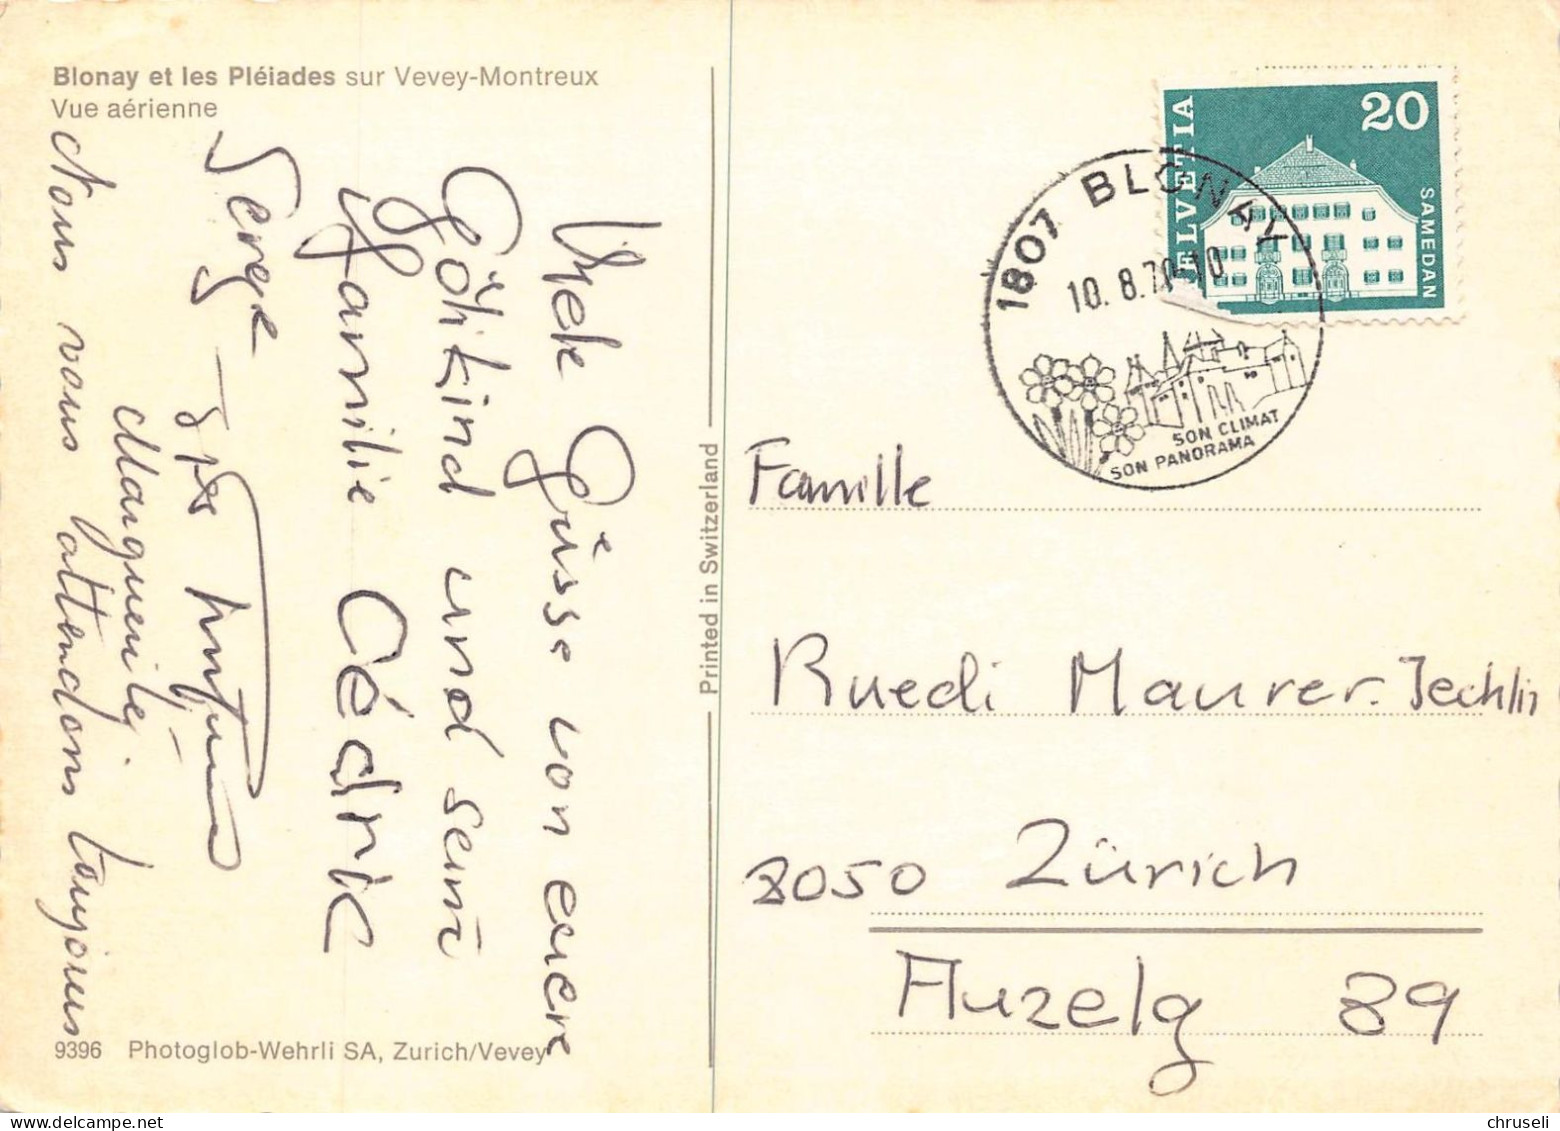 Blonay et les Pléiades sur Vevey-Montreux
Vue aérienne
Viele Grüsse von eurem
Göttikind und seini
Familie Cédric
Serge
Marguerite
Nous vous attendons toujours
9396 Photoglob-Wehrli SA, Zurich/Vevey
Printed in Switzerland
HELVETIA
20
SAMEDAN
1807 BLONAY
10.8.70-10
SON CLIMAT
SON PANORAMA
Famille
Ruedi Maurer-Jecklin
8050 Zürich
Auzelg 89
chruseli